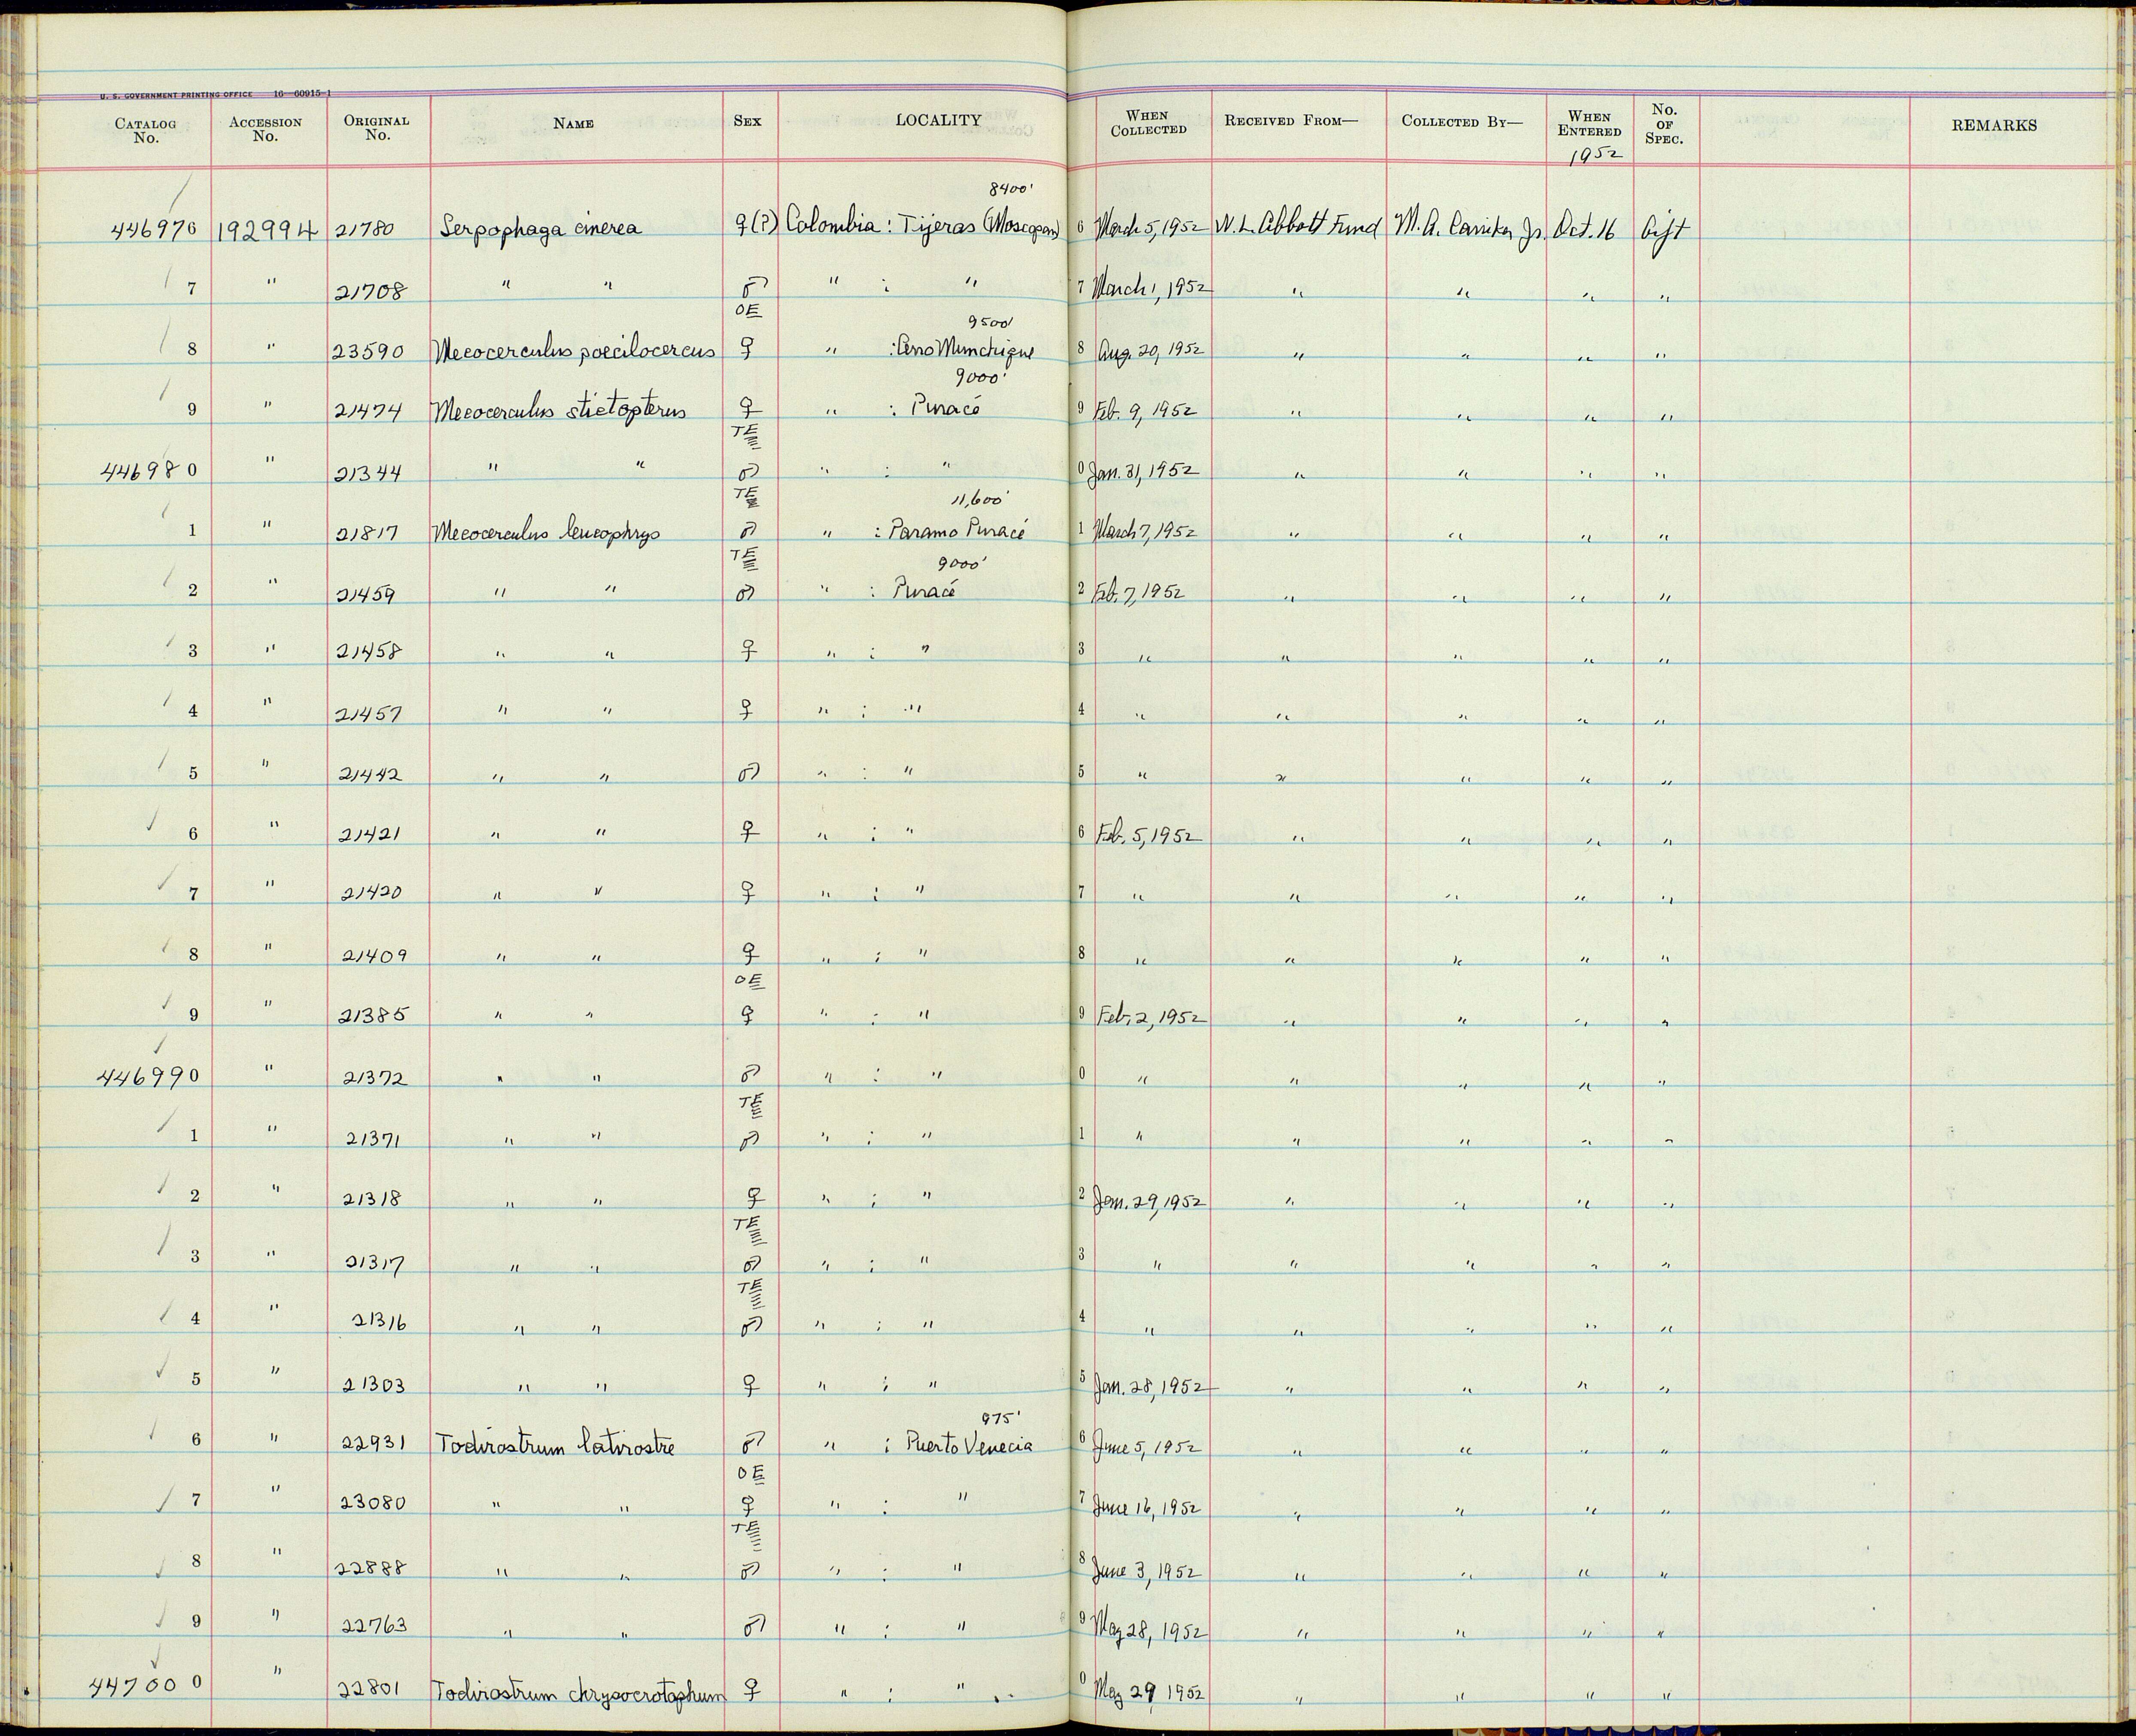 U. S. GOVERNMENT PRINTING OFFICE 16—60915-1
CATALOG No. ACCESSION No. ORIGINAL No. NAME SEX LOCALITY WHEN COLLECTED RECEIVED FROM— COLLECTED BY— WHEN ENTERED NO. OF SPEC. REMARKS
1952
8400'
446976 192994 21780 Serpophaga cinerea ♀(?) Colombia : Tijeras (Moscopan) 6 March 5, 1952 W. L. Abbott Fund M. A. Carriker Jr. Oct. 16 Gift
7 " 21708 " " ♂ " : " 7 March 1, 1952 " " " "
OE 9500'
8 " 23590 Mecocerculus poecilocercus ♀ " : Cerro Munchique 8 Aug. 20, 1952 " " " "
9000'
9 " 21474 Mecocerculus stictopterus ♀ " : Puracé 9 Feb. 9, 1952 " " " "
TE
446980 " 21344 " " ♂ " : " 0 Jan. 31, 1952 " " " "
TE 11,600'
1 " 21817 Mecocerculus leucophrys ♂ " : Paramo Puracé 1 March 7, 1952 " " " "
TE 9000'
2 " 21459 " " ♂ " : Puracé 2 Feb. 7, 1952 " " " "
3 " 21458 " " ♀ " : " 3 " " " " "
4 " 21457 " " ♀ " : " 4 " " " " "
5 " 21442 " " ♂ " : " 5 " " " " "
6 " 21421 " " ♀ " : " 6 Feb. 5, 1952 " " " "
7 " 21420 " " ♀ " : " 7 " " " " "
8 " 21409 " " ♀ " : " 8 " " " " "
OE
9 " 21385 " " ♀ " : " 9 Feb. 2, 1952 " " " "
446990 " 21372 " " ♂ " : " 0 " " " " "
TE
1 " 21371 " " ♂ " : " 1 " " " " "
2 " 21318 " " ♀ " : " 2 Jan. 29, 1952 " " " "
TE
3 " 21317 " " ♂ " : " 3 " " " " "
TE
4 " 21316 " " ♂ " : " 4 " " " " "
5 " 21303 " " ♀ " : " 5 Jan. 28, 1952 " " " "
975'
6 " 22931 Todirostrum latirostre ♂ " : Puerto Venecia 6 June 5, 1952 " " " "
OE
7 " 23080 " " ♀ " : " 7 June 16, 1952 " " " "
TE
8 " 22888 " " ♂ " : " 8 June 3, 1952 " " " "
9 " 22763 " " ♂ " : " 9 May 28, 1952 " " " "
447000 " 22801 Todirostrum chrysocrotaphum ♀ " : " 0 May 29, 1952 " " " "